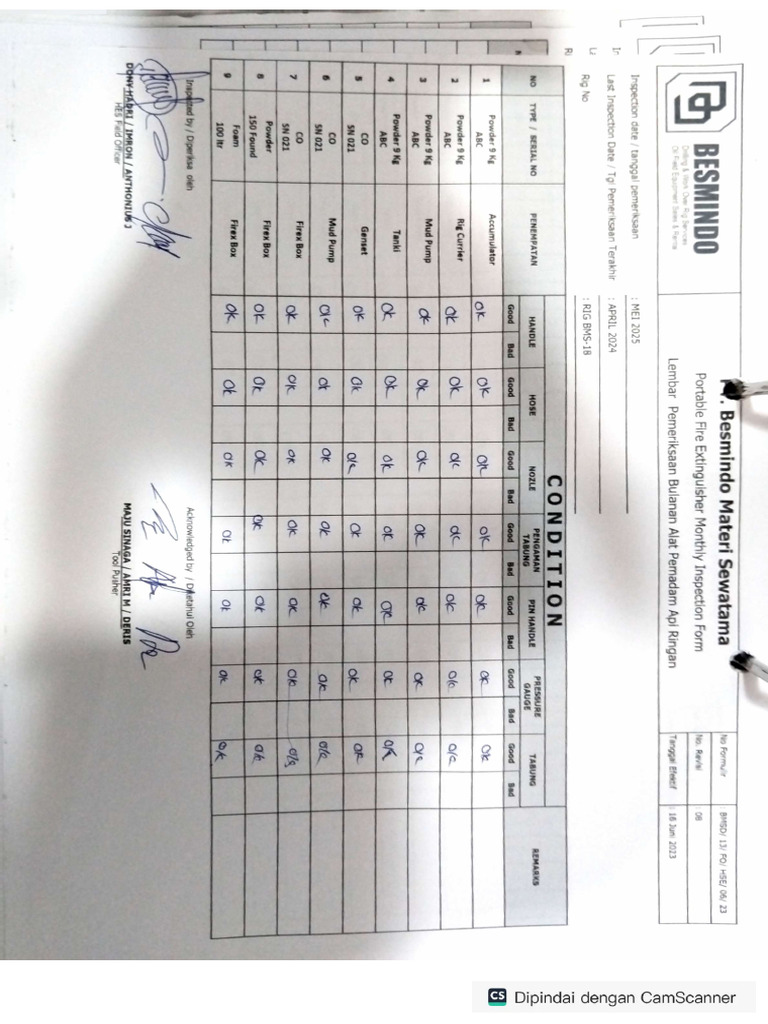 BESMINDO
Drilling & Work Over Rig Services
Oil Field Equipment Sales & Rental
. Besmindo Materi Sewatama
Portable Fire Extinguisher Monthly Inspection Form
Lembar Pemeriksaan Bulanan Alat Pemadam Api Ringan
No Formulir : BMSD/ 13/ FO/ HSE/ 06/ 23
No. Revisi : 08
Tanggal Efektif : 16 Juni 2023
Inspection date / tanggal pemeriksaan : MEI 2025
Last Inspection Date / Tgl Pemeriksaan Terakhir : APRIL 2024
Rig No : RIG BMS-18
CONDITION
NO TYPE / SERIAL NO PENEMPATAN HANDLE HOSE NOZLE PENGAMAN TABUNG PIN HANDLE PRESSURE GAUGE TABUNG REMARKS
Good Bad Good Bad Good Bad Good Bad Good Bad Good Bad Good Bad
1 Powder 9 Kg ABC Accumulator OK OK OK OK OK OK OK
2 Powder 9 Kg ABC Rig Currier OK OK OK OK OK OK OK
3 Powder 9 Kg ABC Mud Pump OK OK OK OK OK OK OK
4 Powder 9 Kg ABC Tanki OK OK OK OK OK OK OK
5 CO SN 021 Genset OK OK OK OK OK OK OK
6 CO SN 021 Mud Pump OK OK OK OK OK OK OK
7 CO SN 021 Firex Box OK OK OK OK OK OK OK
8 Powder 150 Found Firex Box OK OK OK OK OK OK OK
9 Foam 100 ltr Firex Box OK OK OK OK OK OK OK
Inspected by / Diperiksa oleh
Acknowledged by / Diketahui Oleh
DONY HADRI / IMRON / ANTHONIUS J
HES Field Officer
MAJU SINAGA / AMRI M / DERIS
Tool Pusher
CS Dipindai dengan CamScanner